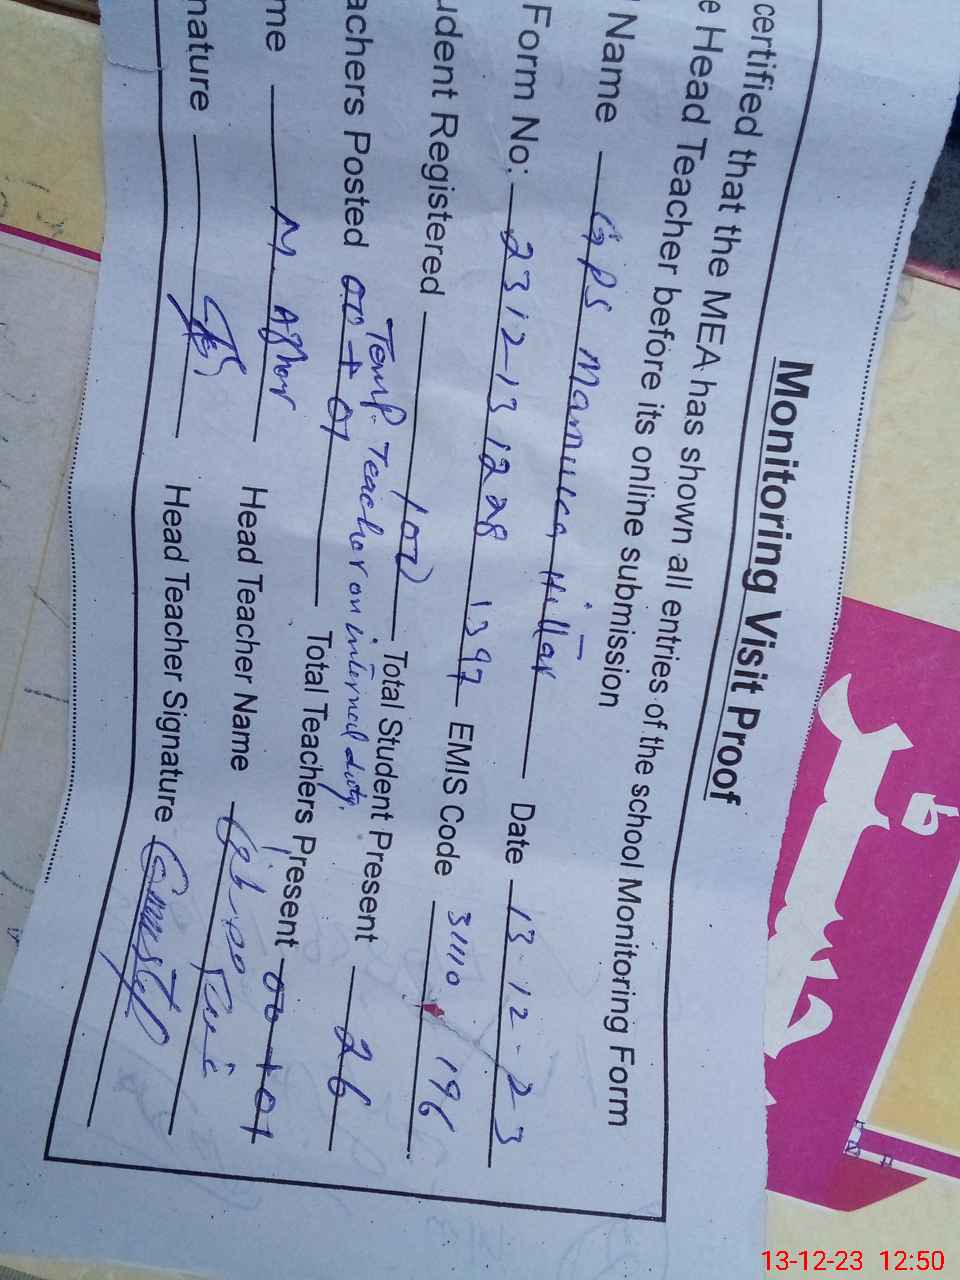 Monitoring Visit Proof
certified that the MEA has shown all entries of the school Monitoring Form
e Head Teacher before its online submission
Name GPS Hittar Date 13-12-23
Form No: 2312-131228 1397 EMIS Code 31110196
udent Registered 100 Total Student Present 26
Temp. Teacher on internal duty.
achers Posted 00+01 Total Teachers Present 00+01
me M. Head Teacher Name
nature Head Teacher Signature
13-12-23 12:50